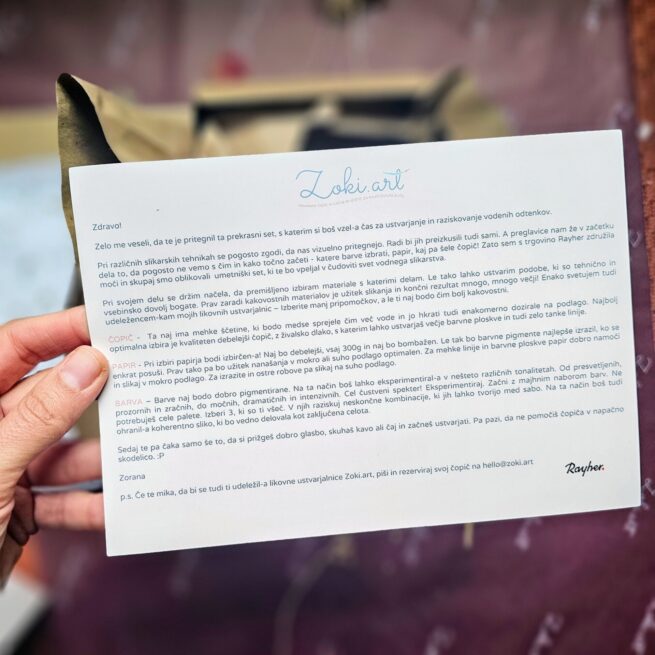 Zoki.art
Zdravo!
Zelo me veseli, da te je pritegnil ta prekrasni set, s katerim si boš vzel-a čas za ustvarjanje in raziskovanje vodenih odtenkov.
Pri različnih slikarskih tehnikah se pogosto zgodi, da nas vizuelno pritegnejo. Radi bi jih preizkusili tudi sami. A preglavice nam že v začetku
dela to, da pogosto ne vemo s čim in kako točno začeti - katere barve izbrati, papir, kaj pa šele čopič! Zato sem s trgovino Rayher združila
moči in skupaj smo oblikovali umetniški set, ki te bo vpeljal v čudoviti svet vodnega slikarstva.
Pri svojem delu se držim načela, da premišljeno izbiram materiale s katerimi delam. Le tako lahko ustvarim podobe, ki so tehnično in
vsebinsko dovolj bogate. Prav zaradi kakovostnih materialov je užitek slikanja in končni rezultat mnogo, mnogo večji! Enako svetujem tudi
udeležencem-kam mojih likovnih ustvarjalnic – Izberite manj pripomočkov, a le ti naj bodo čim bolj kakovostni.
ČOPIČ - Ta naj ima mehke ščetine, ki bodo medse sprejele čim več vode in jo hkrati tudi enakomerno dozirale na podlago. Najbolj
optimalna izbira je kvaliteten debelejši čopič, z živalsko dlako, s katerim lahko ustvarjaš večje barvne ploskve in tudi zelo tanke linije.
PAPIR - Pri izbiri papirja bodi izbirčen-a! Naj bo debelejši, vsaj 300g in naj bo bombažen. Le tak bo barvne pigmente najlepše izrazil, ko se
enkrat posuši. Prav tako pa bo užitek nanašanja v mokro ali suho podlago optimalen. Za mehke linije in barvne ploskve papir dobro namoči
in slikaj v mokro podlago. Za izrazite in ostre robove pa slikaj na suho podlago.
BARVA – Barve naj bodo dobro pigmentirane. Na ta način boš lahko eksperimentiral-a v nešteto različnih tonalitetah. Od presvetjenih,
prozornih in zračnih, do močnih, dramatičnih in intenzivnih. Cel čustveni spekter! Eksperimentiraj. Začni z majhnim naborom barv. Ne
potrebuješ cele palete. Izberi 3, ki so ti všeč. V njih raziskuj neskončne kombinacije, ki jih lahko tvorijo med sabo. Na ta način boš tudi
ohranil-a koherentno sliko, ki bo vedno delovala kot zaključena celota.
Sedaj te pa čaka samo še to, da si prižgeš dobro glasbo, skuhaš kavo ali čaj in začneš ustvarjati. Pa pazi, da ne pomočiš čopiča v napačno
skodelico. :P
Zorana
p.s. Če te mika, da bi se tudi ti udeležil-a likovne ustvarjalnice Zoki.art, piši in rezerviraj svoj čopič na hello@zoki.art
Rayher.